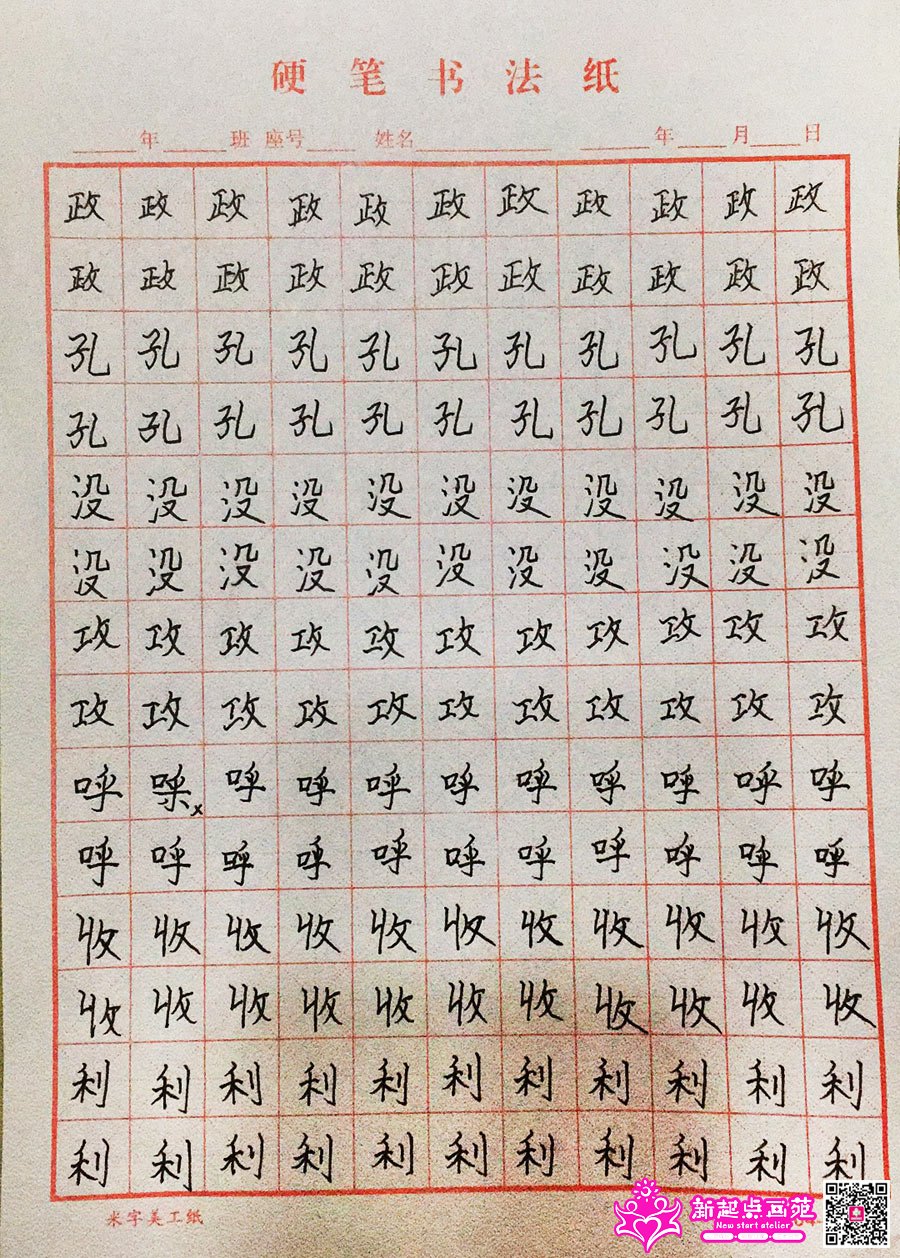 硬笔书法纸
年 班 座号 姓名 年 月 日
政政政政政政政政政政政
政政政政政政政政政政政
孔孔孔孔孔孔孔孔孔孔孔
孔孔孔孔孔孔孔孔孔孔孔
没没没没没没没没没没没
没没没没没没没没没没没
攻攻攻攻攻攻攻攻攻攻攻
攻攻攻攻攻攻攻攻攻攻攻
呼 x 呼呼呼呼呼呼呼呼呼
呼呼呼呼呼呼呼呼呼呼呼
收收收收收收收收收收收
收收收收收收收收收收收
利利利利利利利利利利利
利利利利利利利利利利利
米字美工纸
新起点画苑
New start atelier